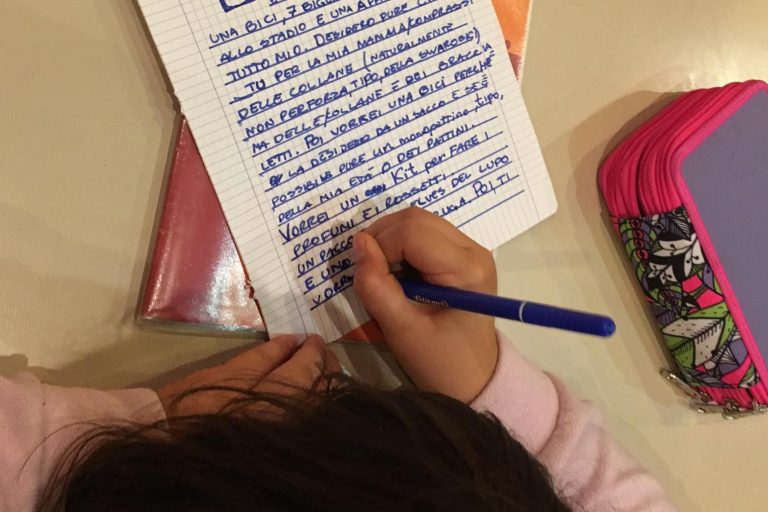 UNA BICI, 7 BIGL
ALLO STADIO E UNA
TUTTO MIO. DESIDERO PURE
TU PER LA MIA MAMMA/COMPRASSI
DELLE COLLANE (NATURALMENTE
NON PERFORZA, TIPO, DELLA SWAROSKI)
MA DELLE COLLANE E DEI BRACCIA
LETTI. POI VORREI UNA BICI PERCHÈ
LA DESIDERO DA UN SACCO E SE È
POSSIBILE PURE UN monopattino tipo,
DELLA MIA ETÀ O DEI PATTINI.
VORREI UN Kit per FARE I
PROFUMI E I ROSSETTI
UN PACCO ELVES DEL LUPO
E UNO POI TI
VORR
Pelikan